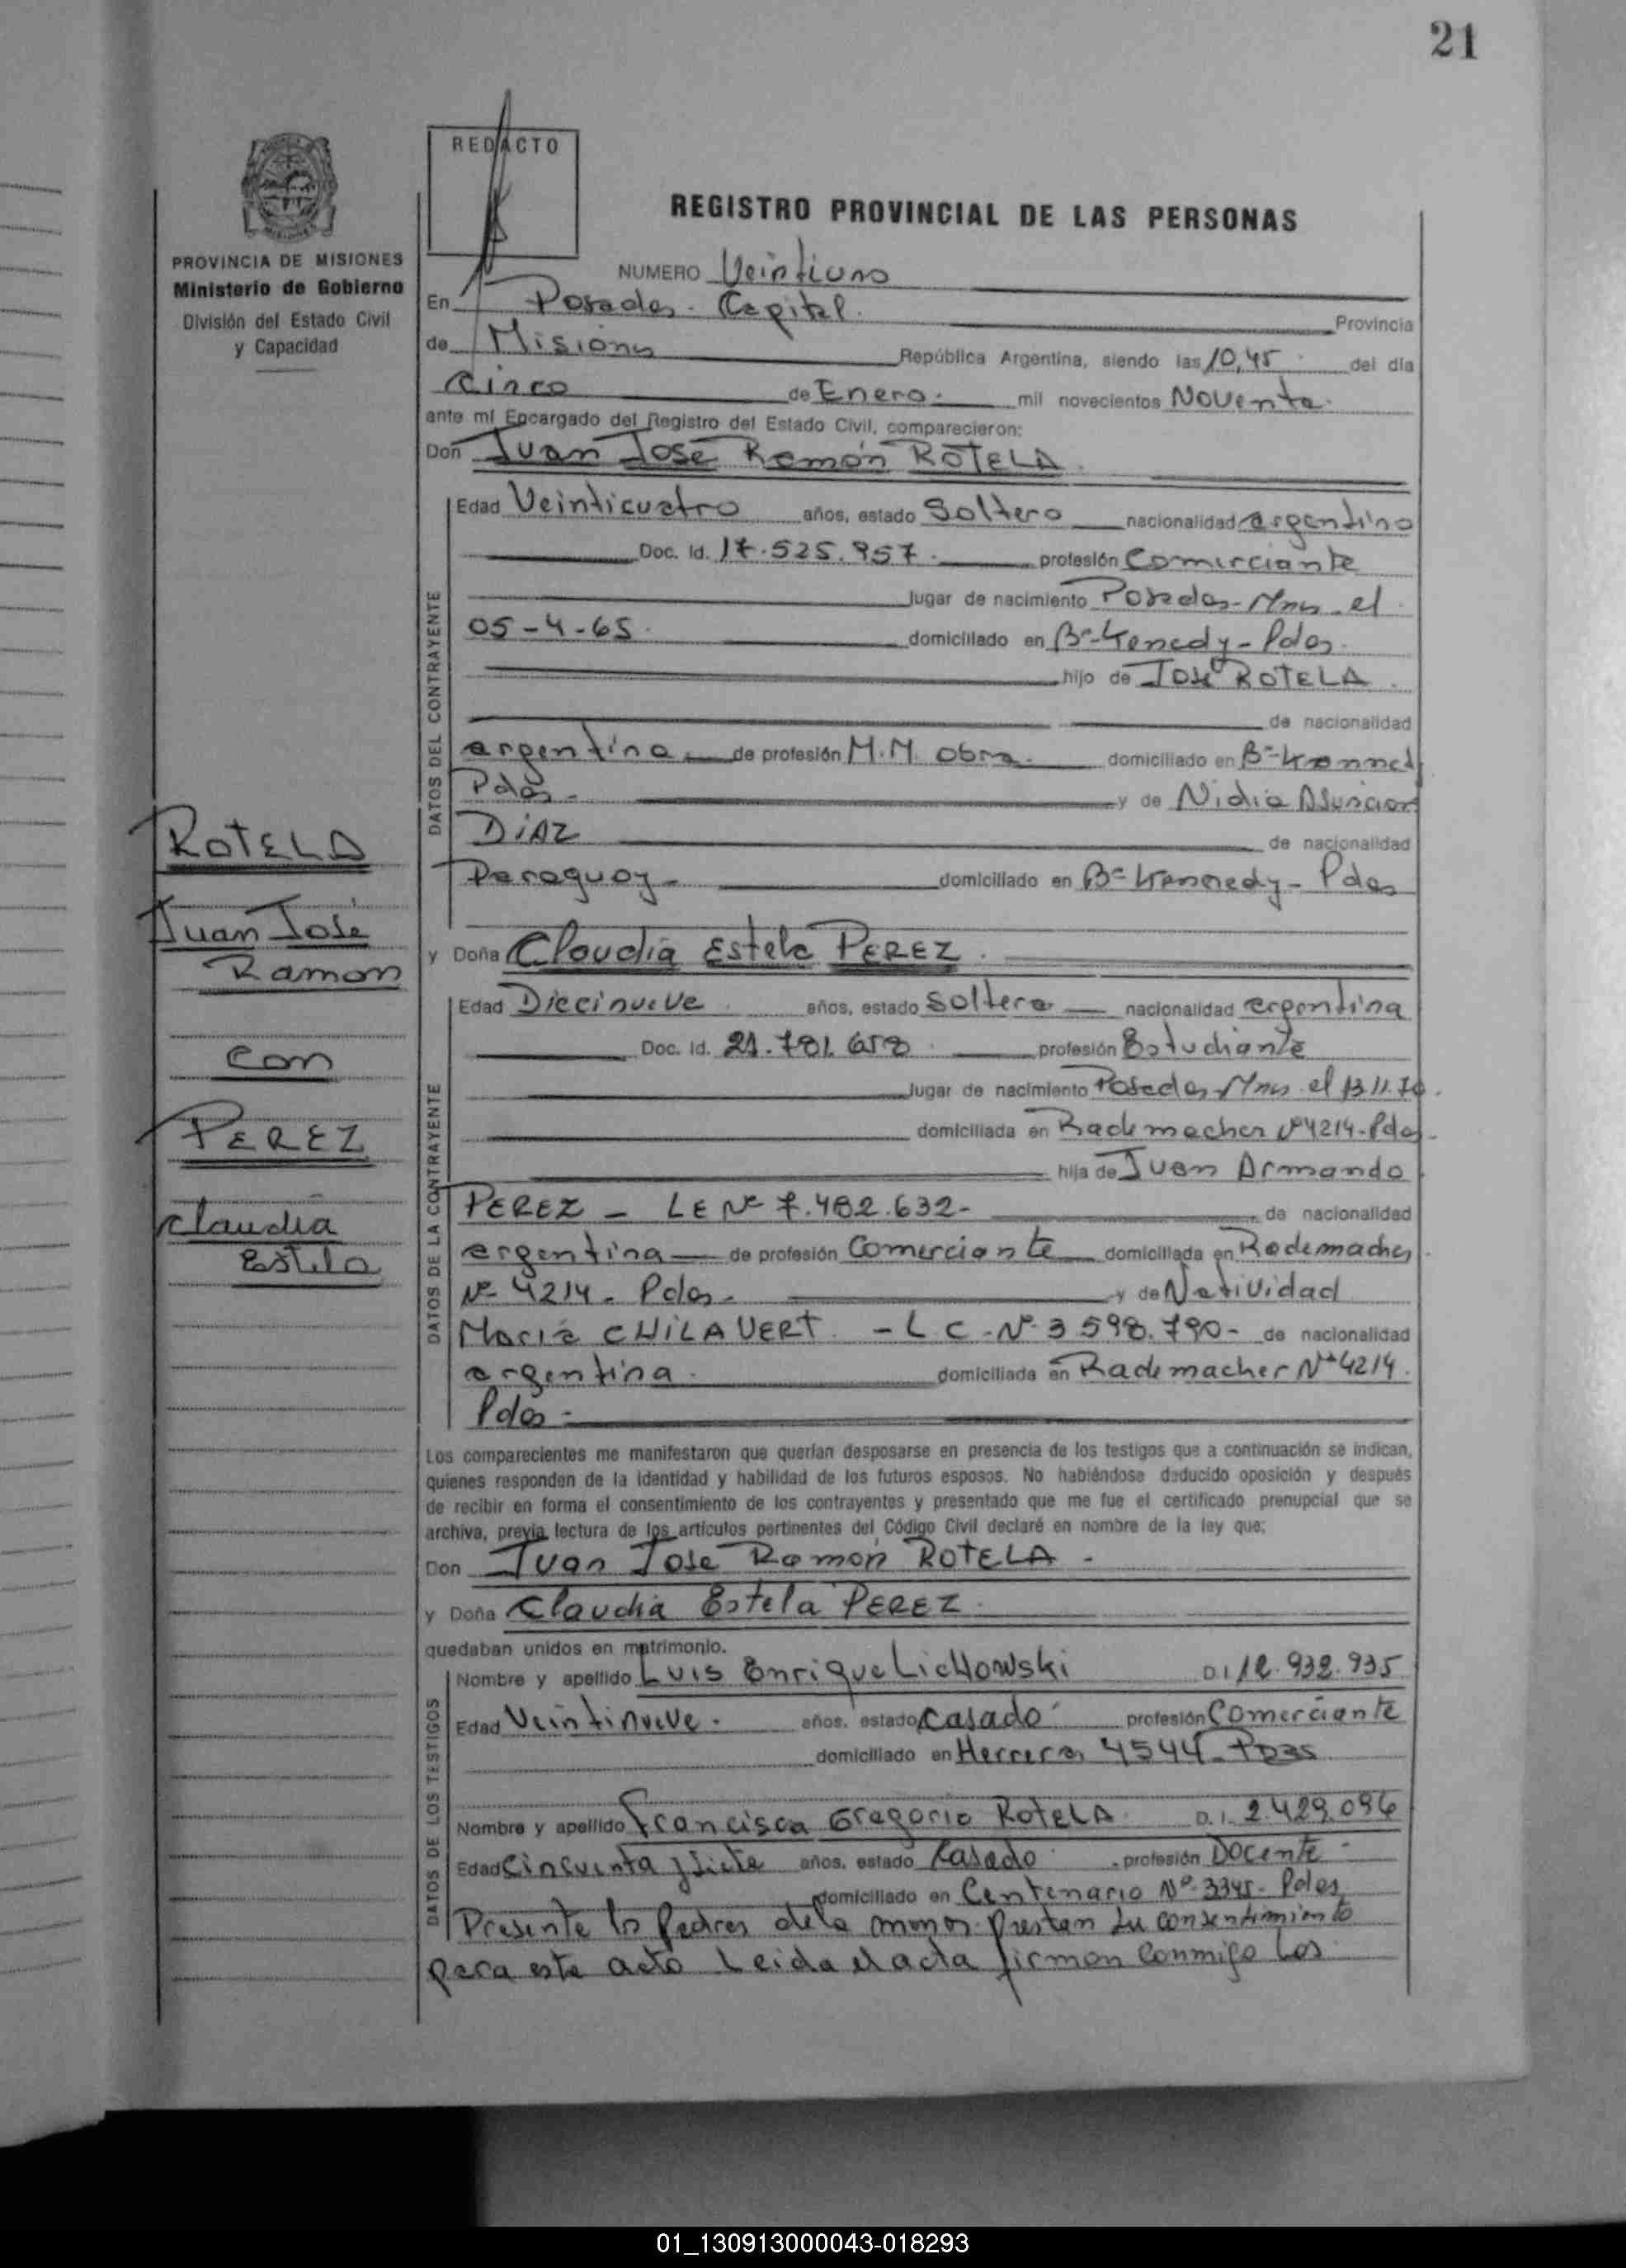 21
REDACTO
REGISTRO PROVINCIAL DE LAS PERSONAS
PROVINCIA DE MISIONES
Ministerio de Gobierno
División del Estado Civil
y Capacidad
NUMERO Veintiuno
En Posadas - Capital. Provincia
de Misiones República Argentina, siendo las 10,45 del día
Cinco de Enero. mil novecientos Noventa.
ante mí Encargado del Registro del Estado Civil, comparecieron:
Don Juan José Ramón ROTELA.
DATOS DEL CONTRAYENTE
Edad Veinticuatro años, estado Soltero nacionalidad argentino
Doc. Id. 17.525.957. profesión Comerciante
lugar de nacimiento Posadas - Mnes el
05-4-65. domiciliado en Bº Kenedy - Pdas.
hijo de José ROTELA.
de nacionalidad
argentina de profesión M.M. obra. domiciliado en Bº
Pdas - y de Nidia Asuncion
DiAZ de nacionalidad
Paraguay - domiciliado en Bº Kennedy - Pdas
ROTELA
Juan José
Ramon
Con
PEREZ
Claudia
Estela
y Doña Claudia Estela PEREZ.
DATOS DE LA CONTRAYENTE
Edad Diecinueve años, estado Soltera nacionalidad argentina
Doc. Id. 21.781.658. profesión Estudiante
lugar de nacimiento Posadas - Mnes el 13.11.70.
domiciliada en Rademacher Nº 4214 - Pdas -
hija de Juan Armando
PEREZ - LE Nº 7.482.632 - de nacionalidad
argentina de profesión Comerciante domiciliada en Rodemacher
Nº 4214 - Pdas - y de Natividad
María CHILAVERT. - L.C. Nº 3.598.790 - de nacionalidad
argentina. domiciliada en Rademacher Nº 4214.
Pdas -
Los comparecientes me manifestaron que querían desposarse en presencia de los testigos que a continuación se indican,
quienes responden de la identidad y habilidad de los futuros esposos. No habiéndose deducido oposición y después
de recibir en forma el consentimiento de los contrayentes y presentado que me fue el certificado prenupcial que se
archiva, previa lectura de los artículos pertinentes del Código Civil declaré en nombre de la ley que:
Don Juan José Ramón ROTELA -
y Doña Claudia Estela PEREZ.
quedaban unidos en matrimonio.
DATOS DE LOS TESTIGOS
Nombre y apellido Luis Enrique LicHowski D.I 12.932.935
Edad Veintinueve. años, estado Casado profesión Comerciante
domiciliado en Herrera 4544 - PDas
Nombre y apellido Francisca Gregorio RotelA. D.I. 2.429.096
Edad Cincuenta y siete años, estado Casado profesión Docente -
domiciliado en Centenario Nº 3345 - Pdas
Presente los Padres de la menor prestan su consentimiento
para este acto Leida el acta firman conmigo los
01_130913000043-018293